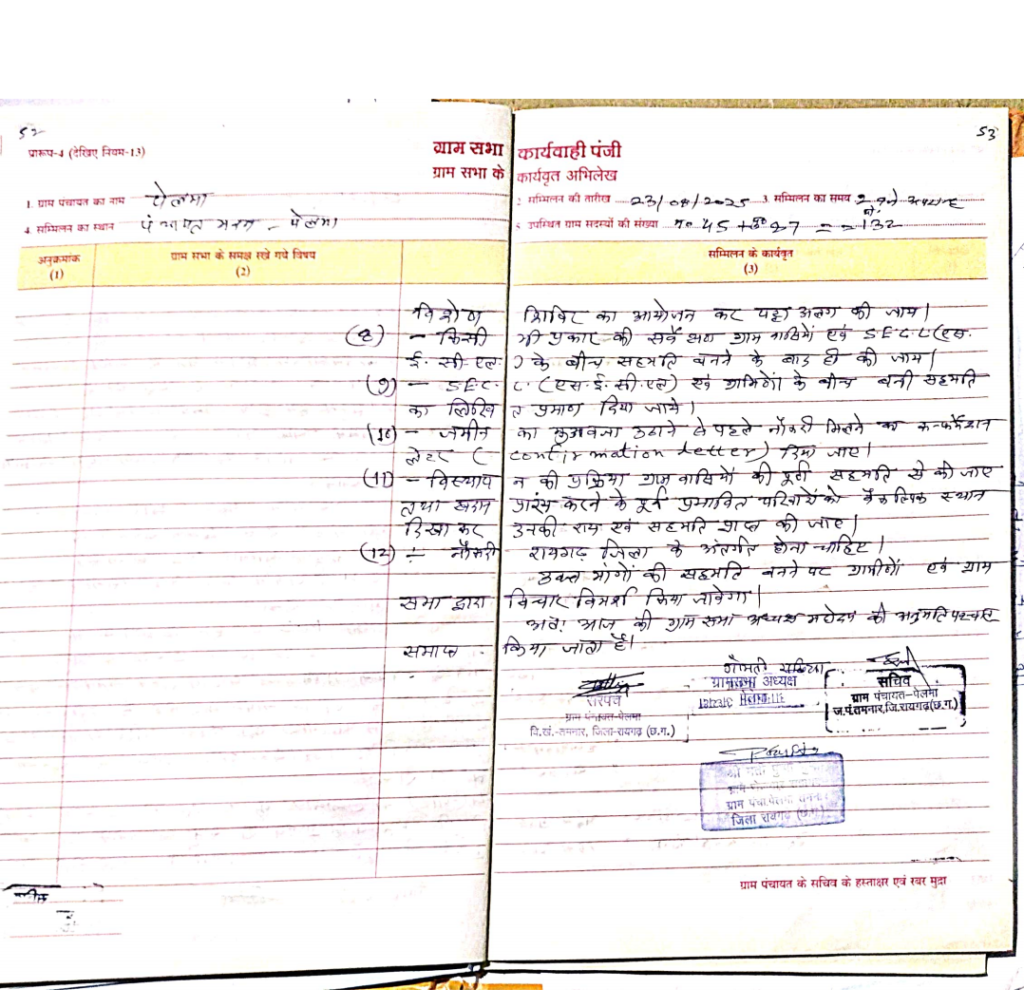 52
53
प्रारूप-4 (देखिए नियम-13)
ग्राम सभा कार्यवाही पंजी
ग्राम सभा के कार्यवृत अभिलेख
1. ग्राम पंचायत का नाम पेलमा
2. सम्मिलन की तारीख 23/08/2025 3. सम्मिलन का समय
4. सम्मिलन का स्थान पंचायत भवन - पेलमा
5. उपस्थित ग्राम सदस्यों की संख्या
अनुक्रमांक (1)
ग्राम सभा के समक्ष रखे गये विषय (2)
सम्मिलन के कार्यवृत (3)
शिविर का आयोजन कर पहा अलग की जाय।
(8) - किसी भी प्रकार की सर्वे ग्राम वासियों एवं S.E.C.L (एस.
ई. सी. एल.) के बीच सहमति बनने के बाद ही की जाय।
(9) - S.E.C.L. (एस.ई.सी.एल) एवं ग्रामिणों के बीच बनी सहमति
का लिखित प्रमाण दिया जाये।
(10) - जमीन का मुआवजा उठाने से पहले नौकरी मिलने का कन्फर्मेशन
लेटर (confirmation Letter) दिया जाए।
(11) - विस्थापन की प्रक्रिया ग्राम वासियों की पूर्ण सहमति से की जाए
तथा खदान प्रारंभ करने के पूर्व प्रभावित परिवारों को वैकल्पिक स्थान
दिखा कर उनकी राय एवं सहमति प्राप्त की जाए।
(12) ÷ नौकरी रायगढ़ जिला के अंतर्गत होना चाहिए।
उक्त मांगों की सहमति बनने पर ग्रामीणों एवं ग्राम
सभा द्वारा विचार विमर्श किया जावेगा।
अतः आज की ग्राम सभा अध्यक्ष महोदय की अनुमति पश्चात
समाप्त किया जाता है।
सरपंच
ग्राम पंचायत-पेलमा
वि.खं.-तमनार, जिला-रायगढ़ (छ.ग.)
ग्रामसभा अध्यक्ष
सचिव
ग्राम पंचायत-पेलमा
ज.पं.तमनार,जि.रायगढ़(छ.ग.)
जिला रायगढ़ (छ.ग.)
ग्राम पंचायत के सचिव के हस्ताक्षर एवं रबर मुद्रा